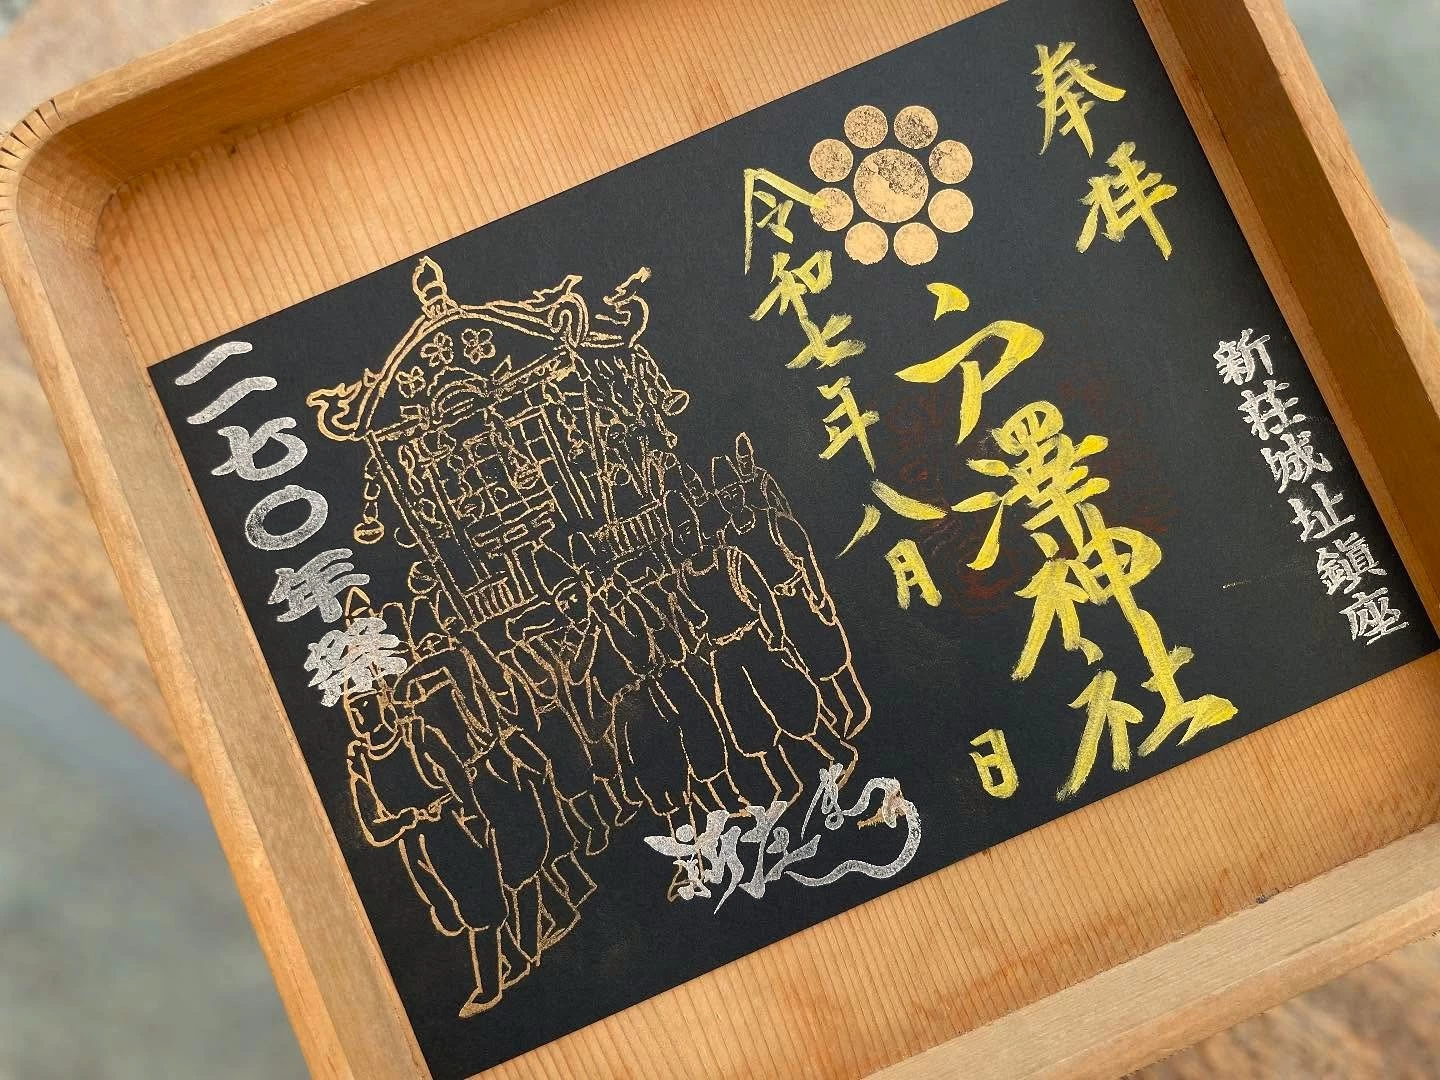 奉拝
新荘城址鎭座
戸澤神社
令和七年八月
日
二七〇年祭
新庄まつり